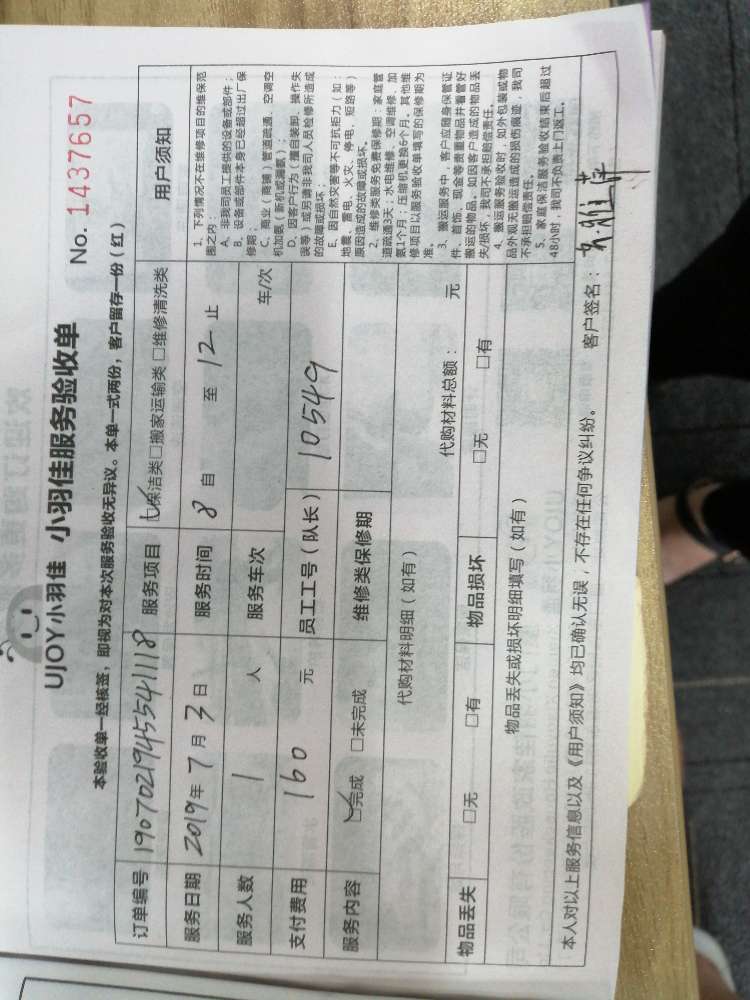 UJOY小羽佳 小羽佳服务验收单
No. 1437657
本验收单一经核签，即视为对本次服务验收无异议。本单一式两份，客户留存一份（红）
订单编号 190702194554118 服务项目 ☑保洁类□搬家运输类 □维修清洗类
服务日期 2019年7月3日 服务时间 8 自 至 12 止
服务人数 1 人 服务车次 车/次
支付费用 160 元 员工工号（队长） 10549
服务内容 ☑完成 □未完成 维修类保修期
代购材料明细（如有） 代购材料总额： 元
物品丢失 □无 □有 物品损坏 □无 □有
物品丢失或损坏明细填写（如有）
用户须知
1、下列情况不在维修项目的维保范
围之内：
A、非我司员工提供的设备或部件；
B、设备或部件本身已经超过出厂保
修期；
C、商业（商铺）管道疏通、空调空
机加氨（新机或漏氨）；
D、因客户行为（擅自装卸、操作失
误等）或另请非我司人员检修所造成
的故障或损坏；
E、因自然灾害等不可抗拒力（如：
地震、雷电、火灾、停电、短路等）
原因造成的故障或损坏。
2、维修类服务免费保修期：家庭管
道疏通3天；水电维修、空调维修、加
氨1个月；压缩机更换6个月。其他维
修项目以服务验收单填写的保修期为
准。
3、搬运服务中，客户应随身保管证
件、首饰、现金等贵重物品并看管好
搬运的物品，如因客户造成的物品丢
失/损坏，我司不承担赔偿责任。
4、搬运服务验收时，如外包装或物
品外观无搬运造成的损伤痕迹，我司
不承担赔偿责任。
5、家庭保洁服务验收结束后超过
48小时，我司不负责上门返工。
本人对以上服务信息以及《用户须知》均已确认无误，不存在任何争议纠纷。 客户签名：